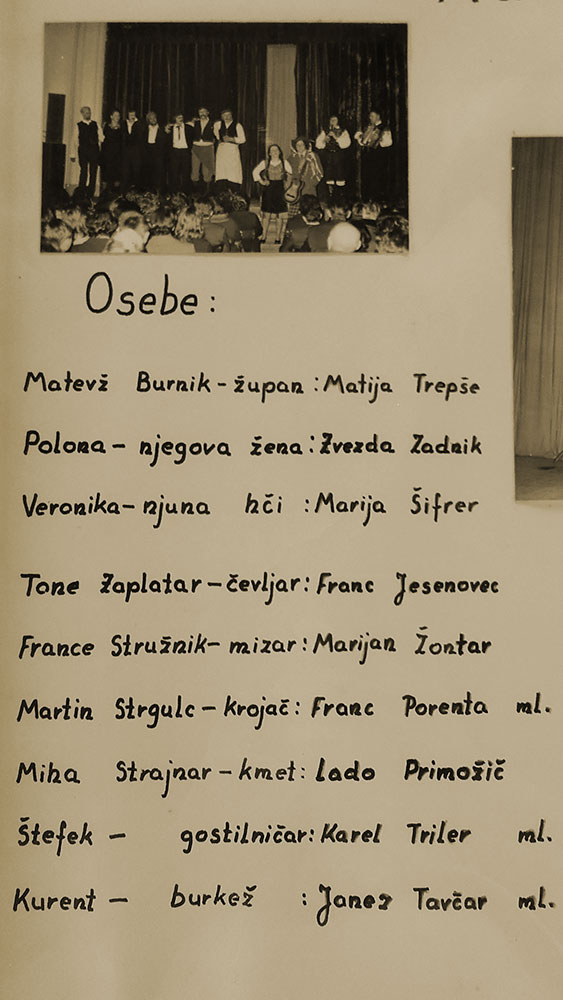 Osebe:
Matevž Burnik - župan : Matija Trepše
Polona - njegova žena : Zvezda Zadnik
Veronika - njuna hči : Marija Šifrer
Tone Zaplatar - čevljar : Franc Jesenovec
France Stružnik - mizar : Marijan Žontar
Martin Strgulc - krojač : Franc Porenta ml.
Miha Strajnar - kmet : Lado Primožič
Štefek - gostilničar : Karel Triler ml.
Kurent - burkež : Janez Tavčar ml.